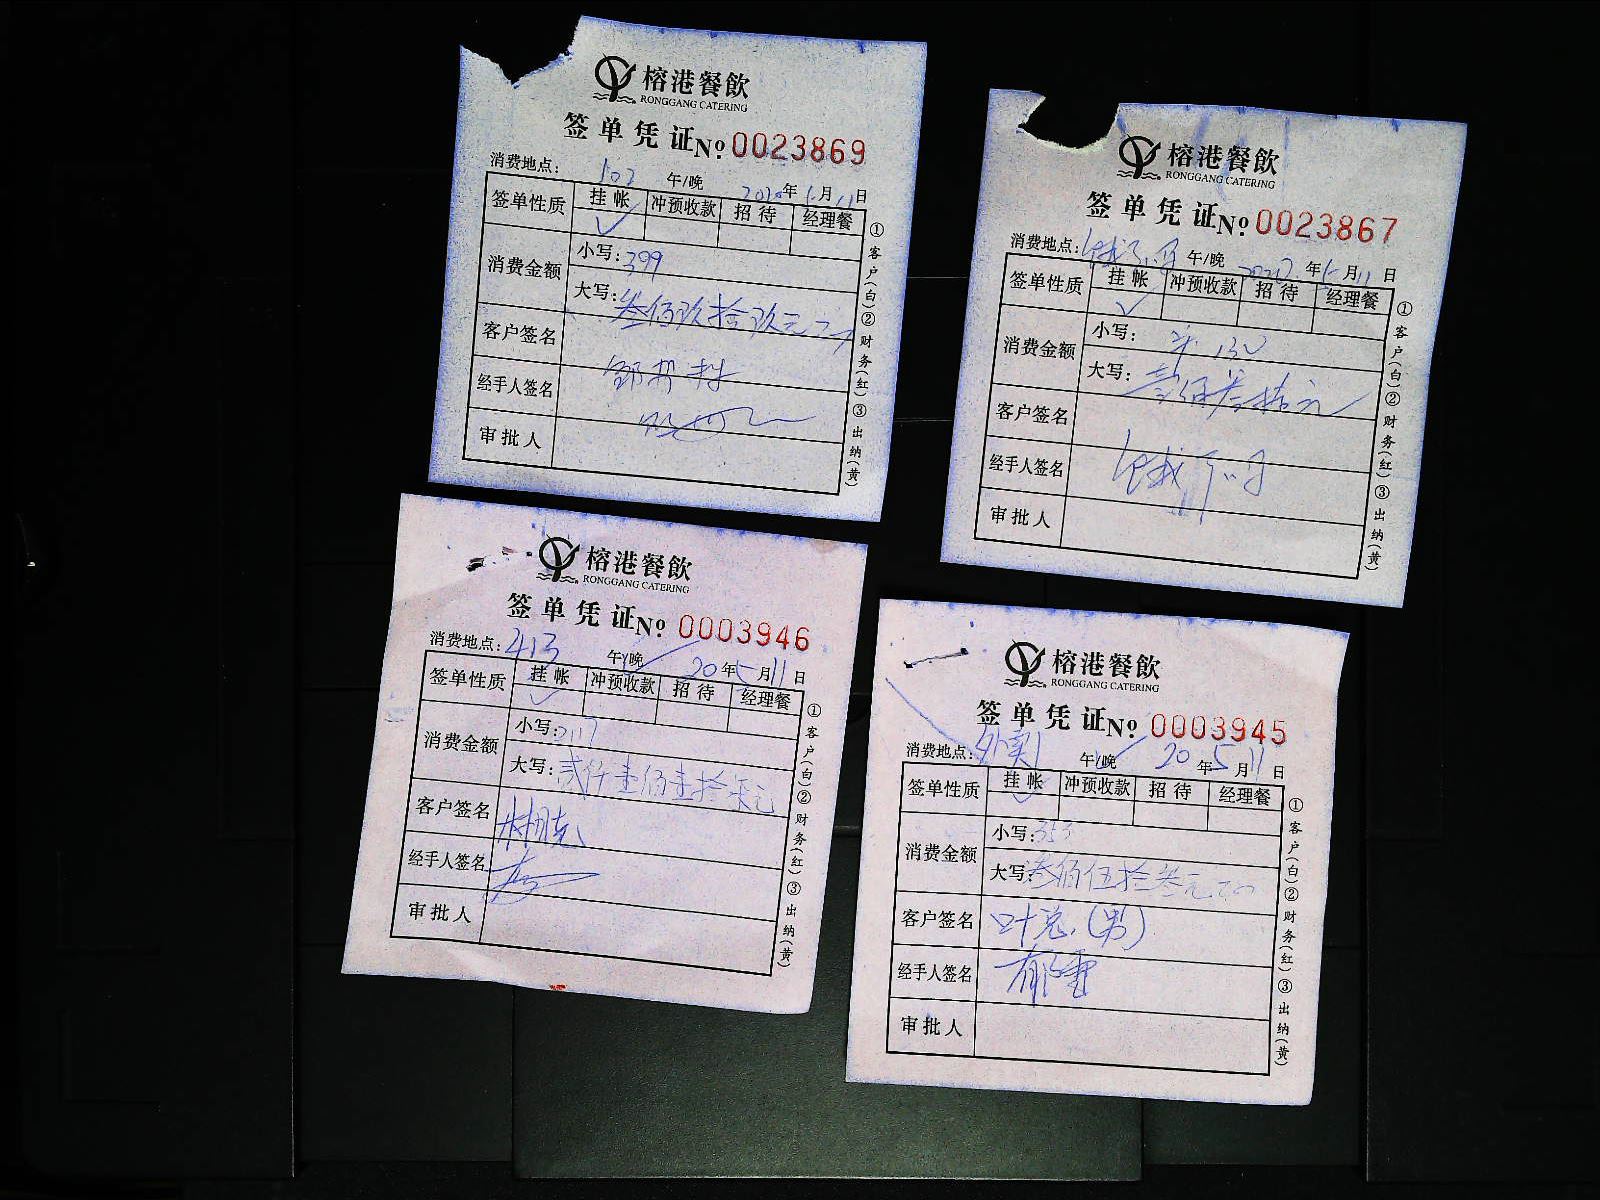 榕港餐飲
RONGGANG CATERING
签单凭证 № 0023869
消费地点: 102 午/晚 2020年5月11日
签单性质 挂帐 冲预收款 招待 经理餐
✓
消费金额 小写: 399
大写: 叁佰玖拾玖元
客户签名
经手人签名
审批人
①客户(白)②财务(红)③出纳(黄)
榕港餐飲
RONGGANG CATERING
签单凭证 № 0023867
消费地点: 午/晚 2020年5月11日
签单性质 挂帐 冲预收款 招待 经理餐
✓
消费金额 小写: 130
大写: 壹佰叁拾元
客户签名
经手人签名
审批人
①客户(白)②财务(红)③出纳(黄)
榕港餐飲
RONGGANG CATERING
签单凭证 № 0003946
消费地点: 413 午/晚 ✓ 20年5月11日
签单性质 挂帐 冲预收款 招待 经理餐
✓
消费金额 小写: 2117
大写: 贰仟壹佰壹拾柒元
客户签名
经手人签名
审批人
①客户(白)②财务(红)③出纳(黄)
榕港餐飲
RONGGANG CATERING
签单凭证 № 0003945
消费地点: 外卖1 午/晚 ✓ 20年5月11日
签单性质 挂帐 冲预收款 招待 经理餐
✓
消费金额 小写: 353
大写: 叁佰伍拾叁元
客户签名 叶总(男)
经手人签名
审批人
①客户(白)②财务(红)③出纳(黄)